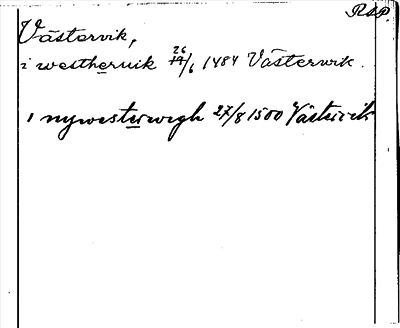 RAP.
Västervik,
i westheruik 26/6 1484 Västervik.
i nywesterwegh 27/8 1500 Västervik